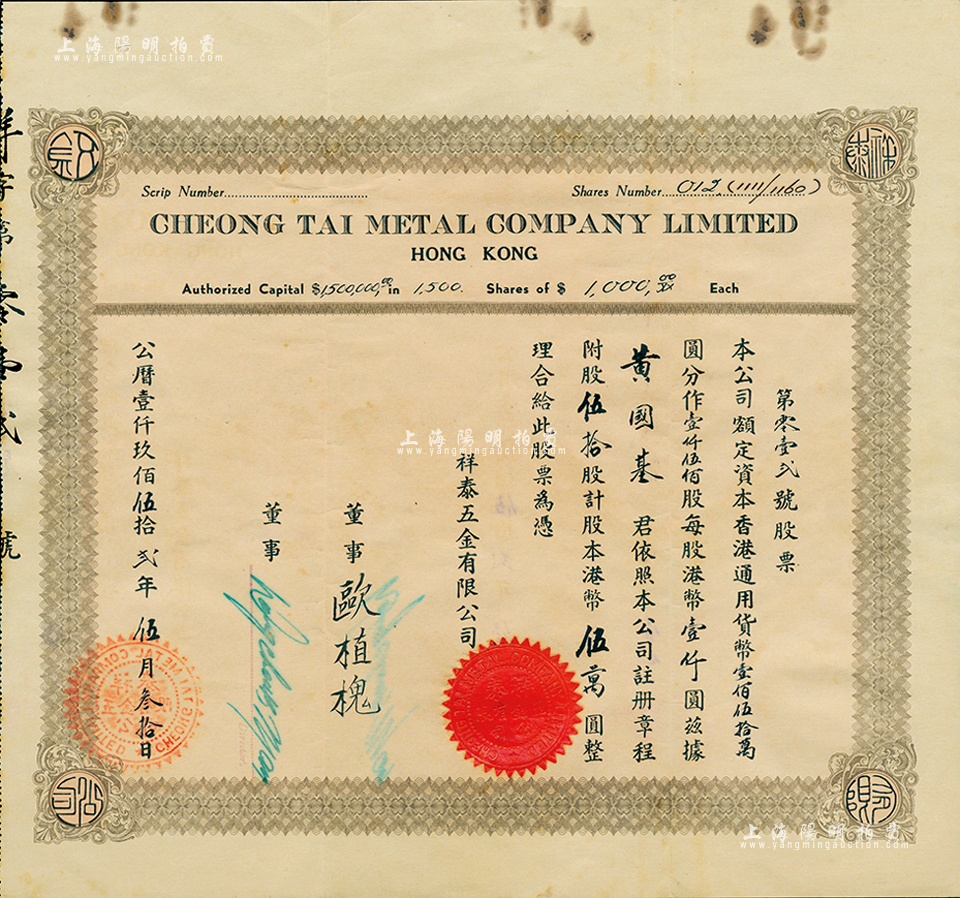 上海陽明拍賣
www.yangmingauction.com
Scrip Number
Shares Number 012 (1111/1160)
CHEONG TAI METAL COMPANY LIMITED
HONG KONG
Authorized Capital $1,500,000.00 in 1,500. Shares of $ 1,000.00 Each
第零壹弍號股票
本公司額定資本香港通用貨幣壹佰伍拾萬
圓分作壹仟伍佰股每股港幣壹仟圓茲據
黃國基 君依照本公司註册章程
附股伍拾股計股本港幣 伍萬 圓整
理合給此股票為憑
祥泰五金有限公司
董事 歐植槐
董事
公曆壹仟玖佰伍拾弍年 伍月叁拾日
祥字第零壹弍號
祥泰
五金
有限
公司
上海陽明拍賣
www.yangmingauction.com
上海陽明拍賣
www.yangmingauction.com